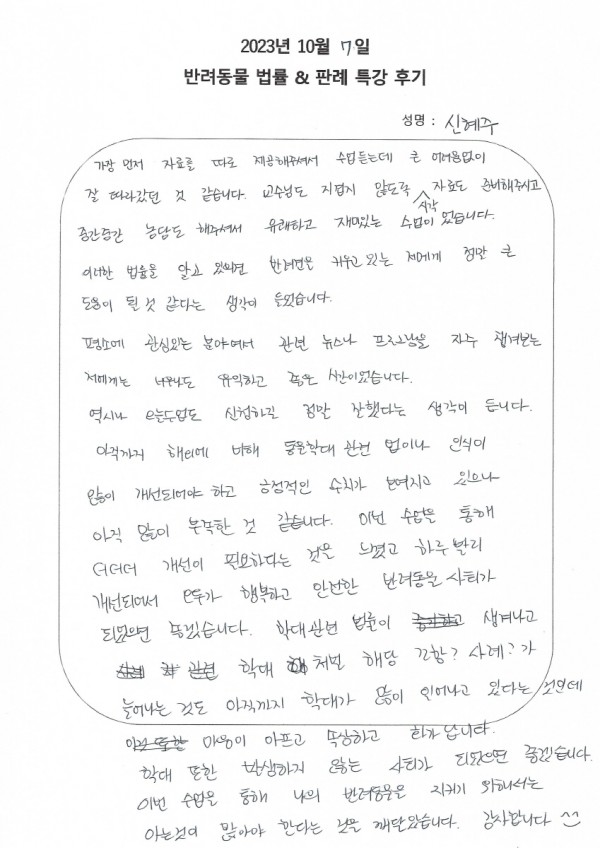 2023년 10월 7일
반려동물 법률 & 판례 특강 후기
성명 : 신혜주
가장 먼저 자료를 따로 제공해주셔서 수업듣는데 큰 어려움없이
잘 따라갔던 것 같습니다. 교수님도 지렵지 않도록 시각 자료도 준비해주시고
중간중간 농담도 해주셔서 유쾌하고 재미있는 수업이었습니다.
이러한 법률을 알고 있으면 반려견을 키우고 있는 저에게 정말 큰
도움이 될 것 같다는 생각이 들었습니다.
평소에 관심있는 분야여서 관련 뉴스나 프로그램을 자주 챙겨보는
저에게는 너무나도 유익하고 좋은 시간이었습니다.
역시나 오늘수업도 신청하길 정말 잘했다는 생각이 듭니다.
아직까지 해외에 비해 동물학대 관련 법이나 인식이
많이 개선되어야 하고 긍정적인 수치가 보여지고 있으나
아직 많이 부족한 것 같습니다. 이번 수업을 통해
더더더 개선이 필요하다는 것을 느꼈고 하루 빨리
개선되어서 모두가 행복하고 안전한 반려동물 사회가
되었으면 좋겠습니다. 학대관련 법률이 생겨나고
학대 처벌 해당 조항? 사례?가
늘어나는 것도 아직까지 학대가 많이 일어나고 있다는 것인데
마음이 아프고 속상하고 화가 납니다.
학대 또한 발생하지 않는 사회가 되었으면 좋겠습니다.
이번 수업을 통해 나의 반려동물을 지키기 위해서는
아는것이 많아야 한다는 것을 깨달았습니다. 감사합니다 ^^